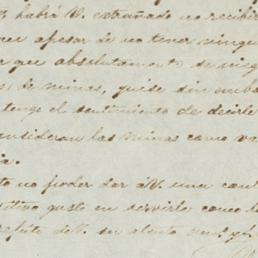 habrá V. extrañado no recibir
que apesar de no tener ningu
que absolutamente de nin
de minas, quise sin emba
tengo el sentimiento de decirle
consideran las minas como va
ia.
to no poder dar á V. una con
gusto en servirle como
de V. su atento